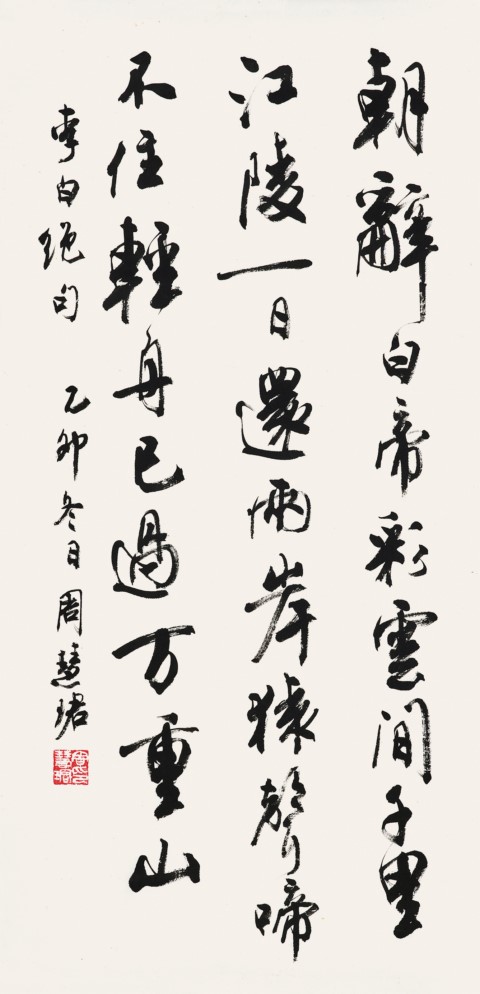 朝辭白帝彩雲間千里
江陵一日還兩岸猿聲啼
不住輕舟已過万重山
李白绝句 乙卯冬日周慧珺